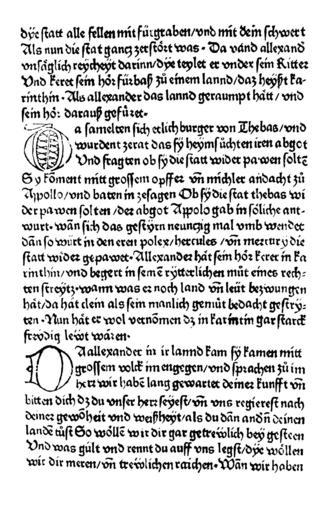 dye statt alle fellen mit fürgraben/vnd mit dem schwert
Als nun die stat gancz zerstört was · Da vand allexand
vnsäglich reycheyt darinn/dye teylet er vnder sein Ritter
Vnd keret sein hör fürbaß zů einem lannd/daz heyßt ka-
rinthin · Als allexander das lannd geraumpt hätt/vnd
sein hör darauß gefüret·
Da samelten sich etlich burger von Thebas/vnd
wurdent zerat das sy heymsüchten iren abgot
Vnd fragten ob sy die statt wider pawen soltē
Sy kōment mitt grossem opffer vn̄ michler andacht zů
Apollo/vnd baten in zesagen Ob sy die stat thebas wi
der pawen solten/der abgot Appolo gab in söliche ant-
wurt· wān sich das gestyrn neunczig mal vmb wendet
dān so wirt in den eren polex/hercules/vn̄ mercury die
statt wider gepawet·Allexander hāt sein hör keret in ka
rinthin/vnd begert in semē rytterlichen můt eines rech-
ten streytz·wann was er noch land vn̄ leüt bezwungen
hät/da hät elem als sein manlich gemüt bedacht gestry-
ten · Nun hāt er wol vernōmen dz in karintin gar starck
freydig lewt wāren·
DA allexander in ir lannd kam sy kamen mitt
grossem volck im engegen/vnd sprachen zů im
herr wir habē lang gewartet deiner kunfft vn̄
bitten dich dz du vnser herr seyest/vn̄ vns regierest nach
deiner gewōheit vnd weißheyt/als du dān andn̄ deinen
landē tůst So wöllē wir dir gar getreẅlich bey gesteen
Vnd was gült vnd rennt du auff vns legst/dye wöllen
wir dir meren/vn̄ trewlichen raichen· Wān wir haben